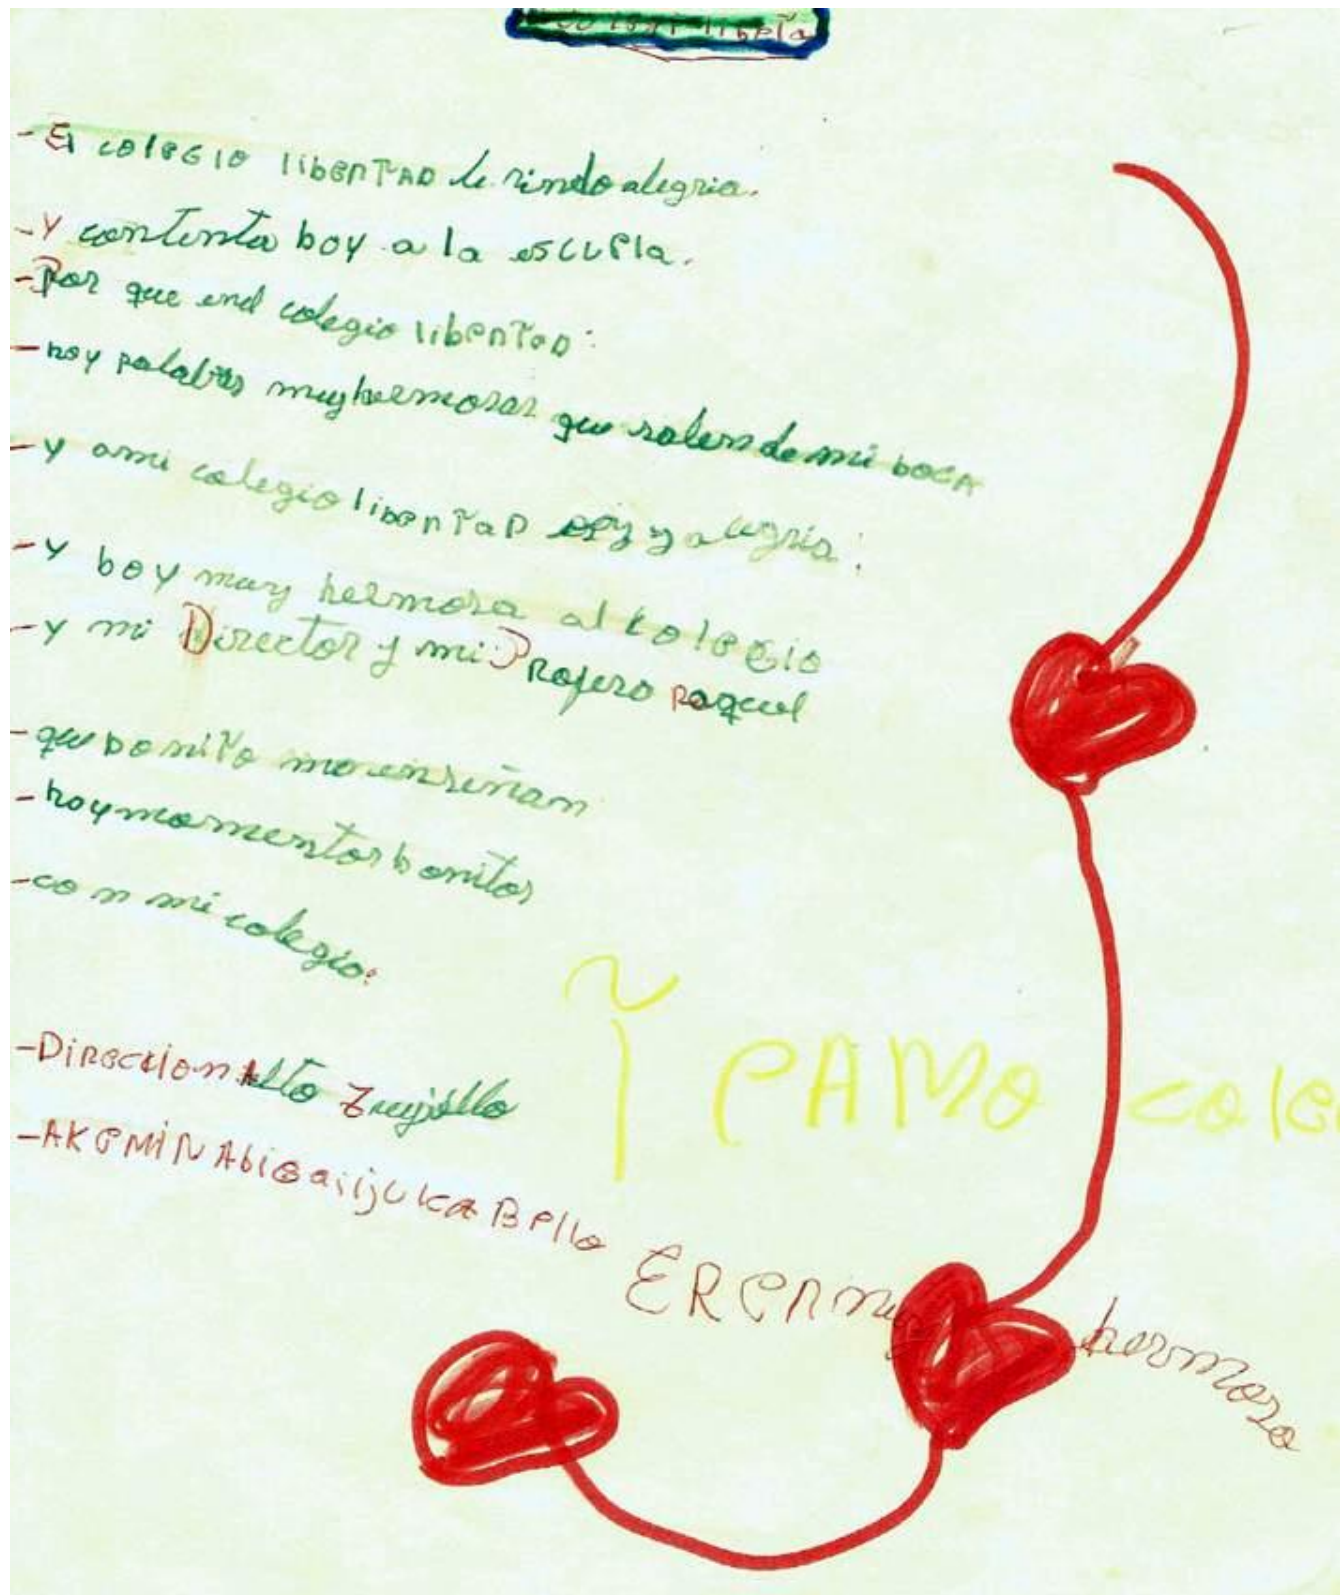 libeta
- El colegio libertad le rindo alegria.
- Y contenta boy a la escuela.
- Por que enel colegio libertad:
- hay palabras muy hermosas que salen de mi boca
- y ami colegio libertad y alegria:
- y boy muy hermosa al kolegio
- y mi Director y mi Profesora raquel
- que bonito me enseñan
- hay momentos bonitos
- con mi colegio:
- Direccion Alto Trujillo
- AKEMIN Abigail juka Bello
TEAMO cole
ERES muy hermoso